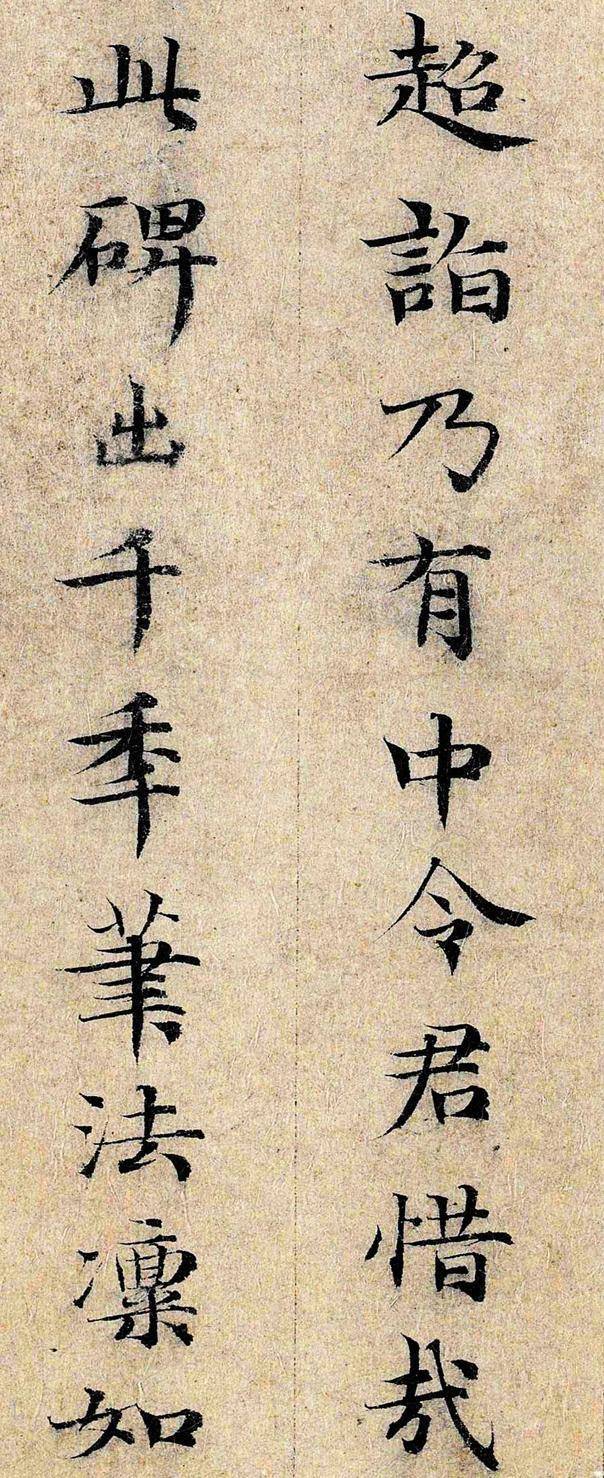 超詣乃有中令君惜哉
此碑出千季筆法凛如